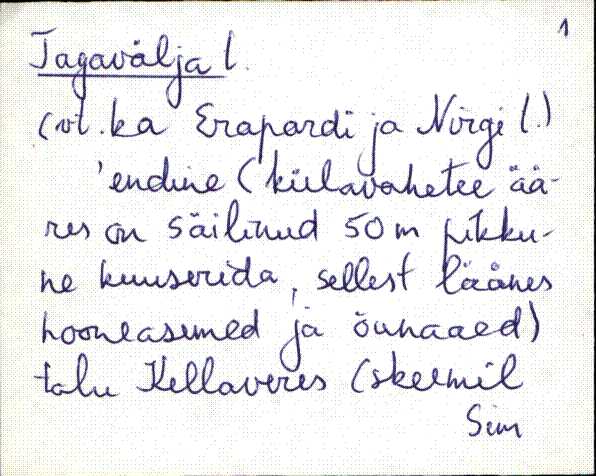 1
Tagavälja l.
(vt. ka Erapardi ja Nirgi l.)
'endine (külavahetee ää-
res on säilinud 50 m pikku-
ne kuuserida, sellest läänes
hooneasemed ja õunaaed)
talu Kellaveres (skeemil
Sim